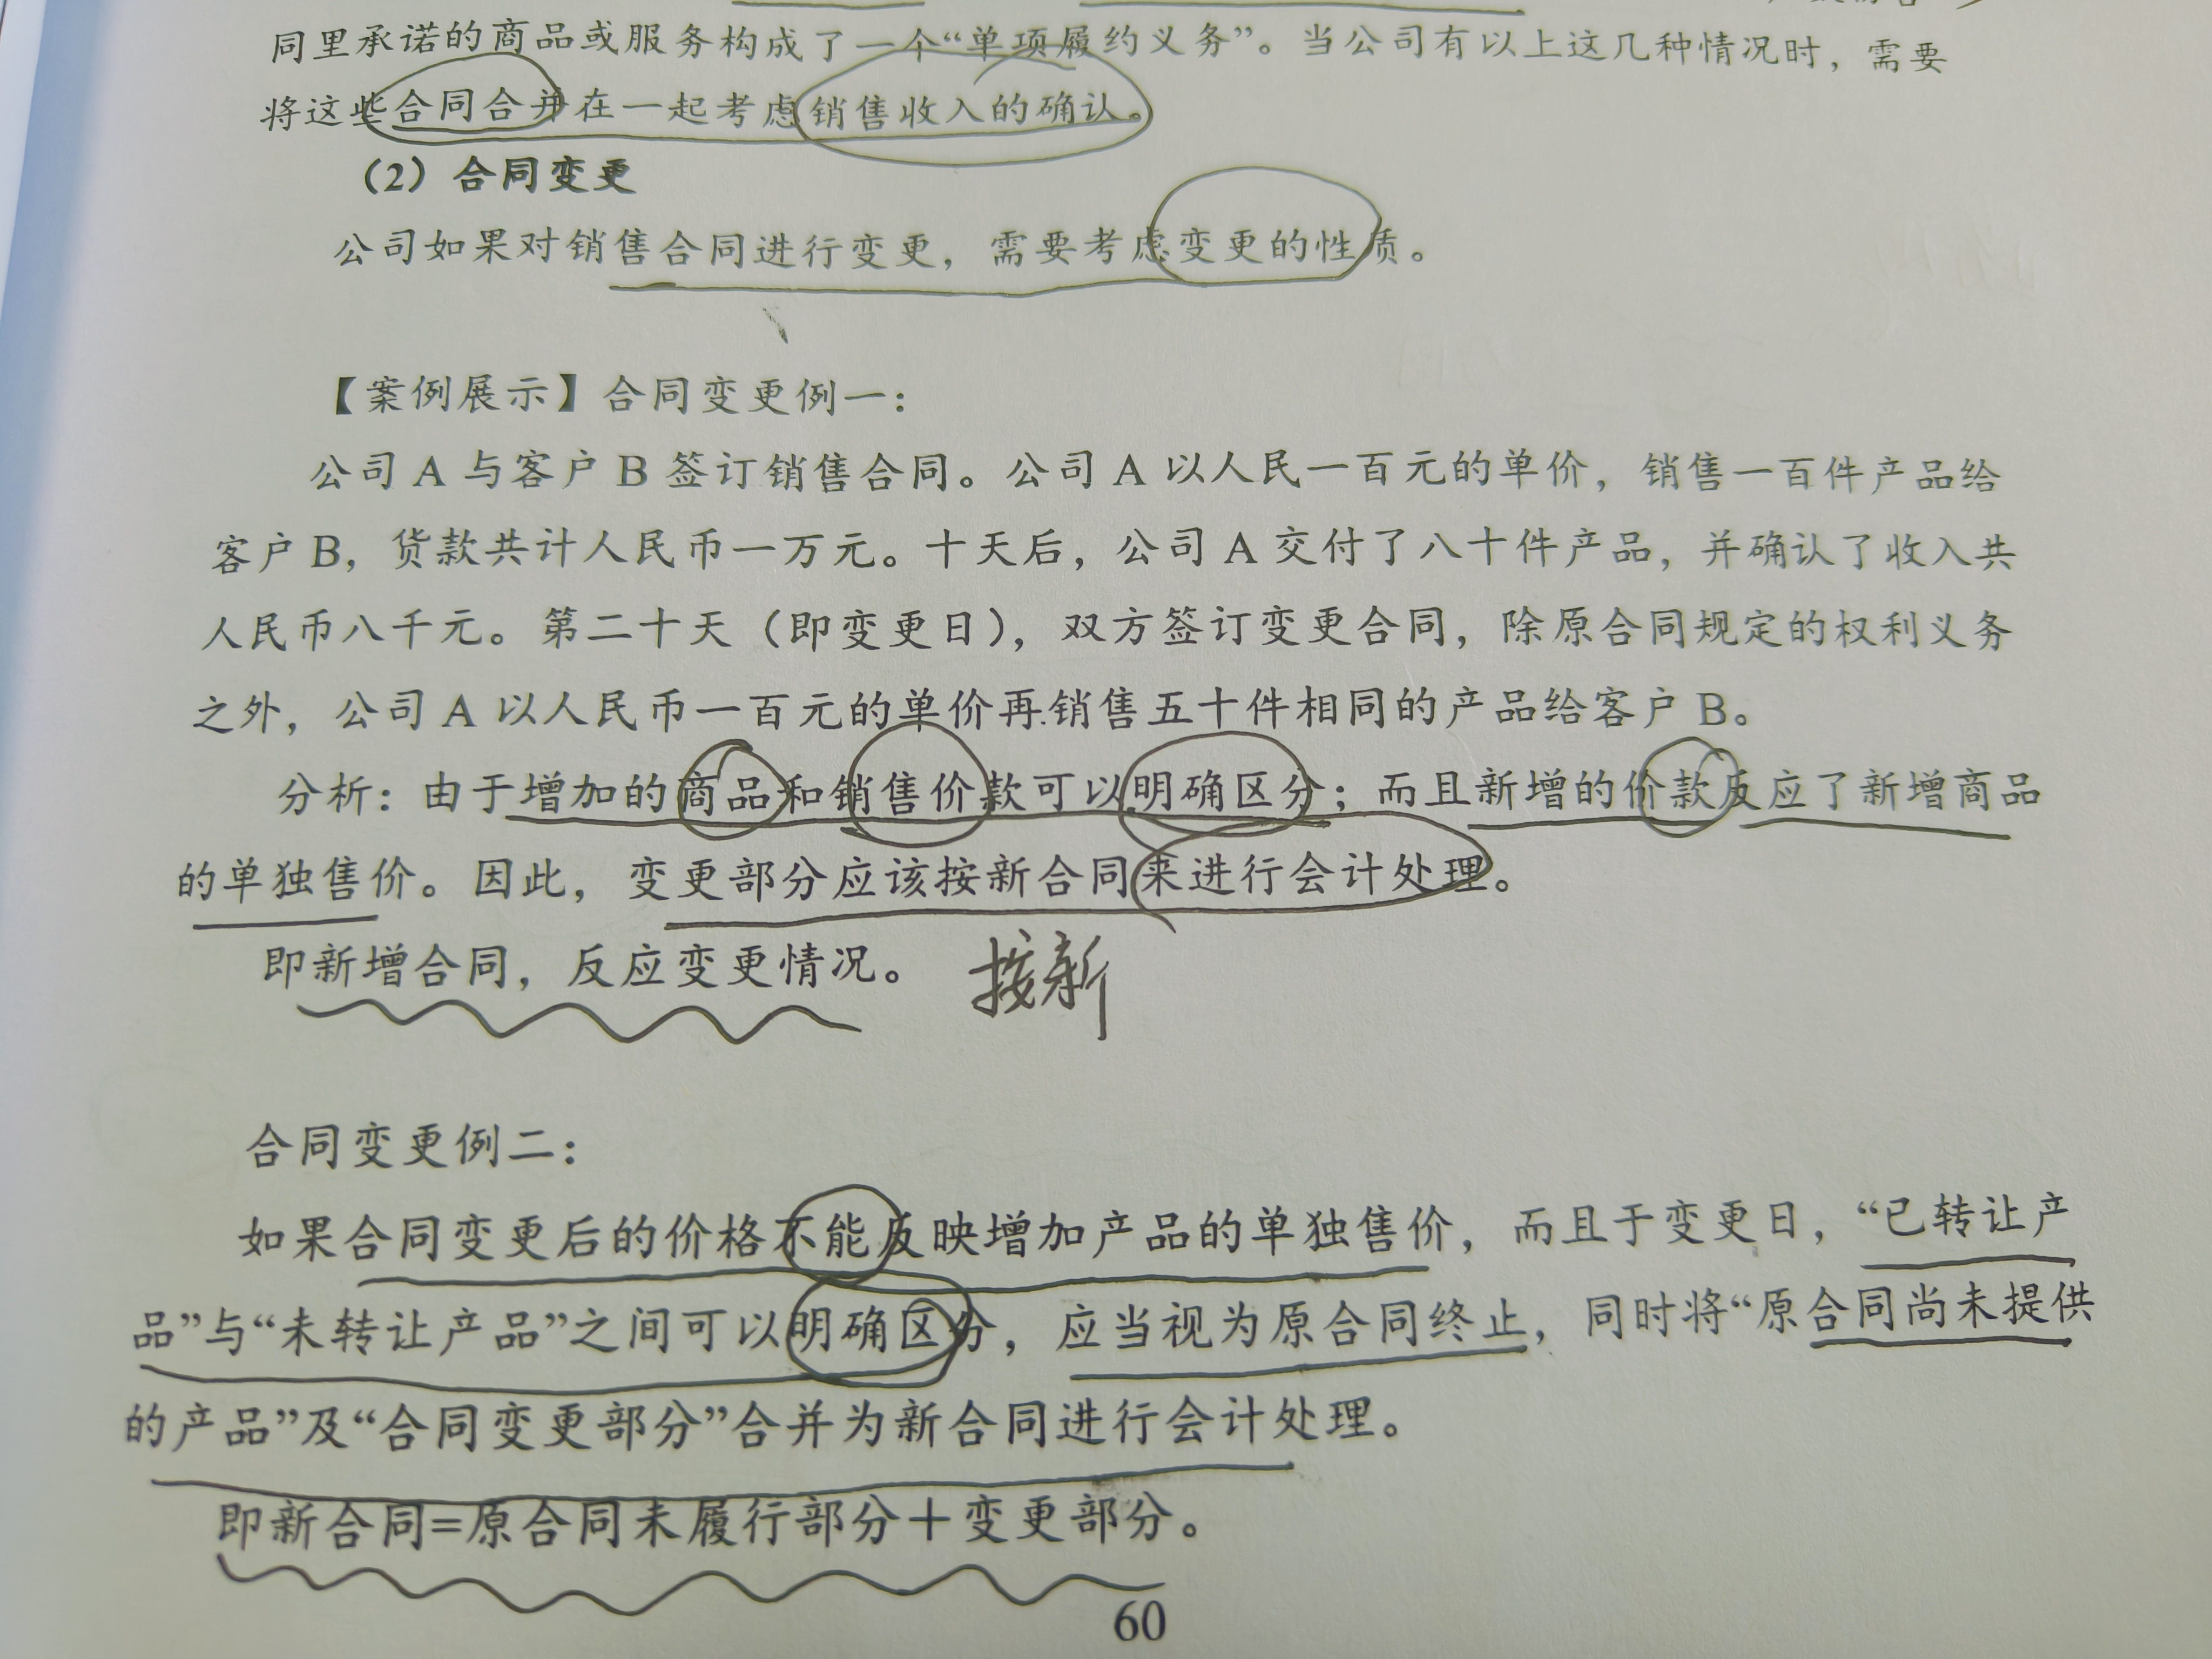 同里承诺的商品或服务构成了一个“单项履约义务”。当公司有以上这几种情况时，需要
将这些合同合并在一起考虑销售收入的确认。
（2）合同变更
公司如果对销售合同进行变更，需要考虑变更的性质。
【案例展示】合同变更例一：
公司 A 与客户 B 签订销售合同。公司 A 以人民一百元的单价，销售一百件产品给
客户 B，货款共计人民币一万元。十天后，公司 A 交付了八十件产品，并确认了收入共
人民币八千元。第二十天（即变更日），双方签订变更合同，除原合同规定的权利义务
之外，公司 A 以人民币一百元的单价再销售五十件相同的产品给客户 B。
分析：由于增加的商品和销售价款可以明确区分；而且新增的价款反应了新增商品
的单独售价。因此，变更部分应该按新合同来进行会计处理。
即新增合同，反应变更情况。 按新
合同变更例二：
如果合同变更后的价格不能反映增加产品的单独售价，而且于变更日，“已转让产
品”与“未转让产品”之间可以明确区分，应当视为原合同终止，同时将“原合同尚未提供
的产品”及“合同变更部分”合并为新合同进行会计处理。
即新合同=原合同未履行部分＋变更部分。
60